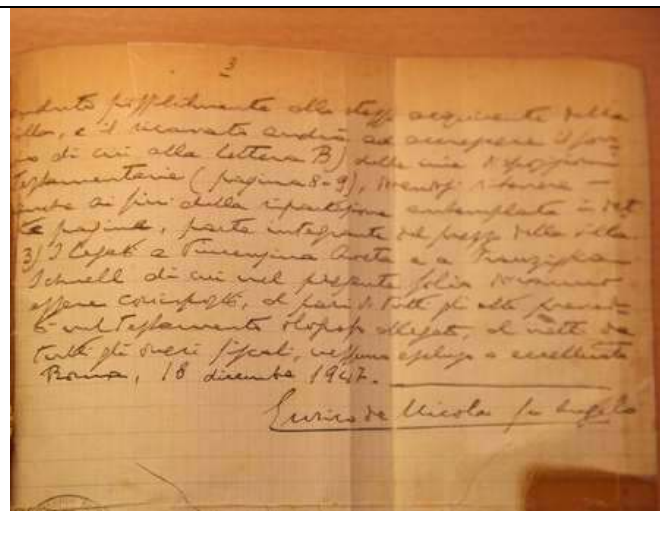 3
venduto possibilmente allo stesso acquirente della
villa, e il ricavato andrà ad accrescere il
di cui alla lettera B) delle mie disposizioni
testamentarie (pagina 8-9), dovendosi ritenere —
anche ai fini della ripartizione contemplata in det
te pagine, parte integrante del prezzo della villa.
3) I legati a Vincenzina e a
Schnell di cui nel presente foglio dovranno
essere corrisposti, al pari di tutti gli altri
nel testamento olografo allegato, al netto da
tutti gli oneri fiscali, nessuno escluso o eccettuato
Roma, 18 dicembre 1947.
Enrico de Nicola fu Angelo